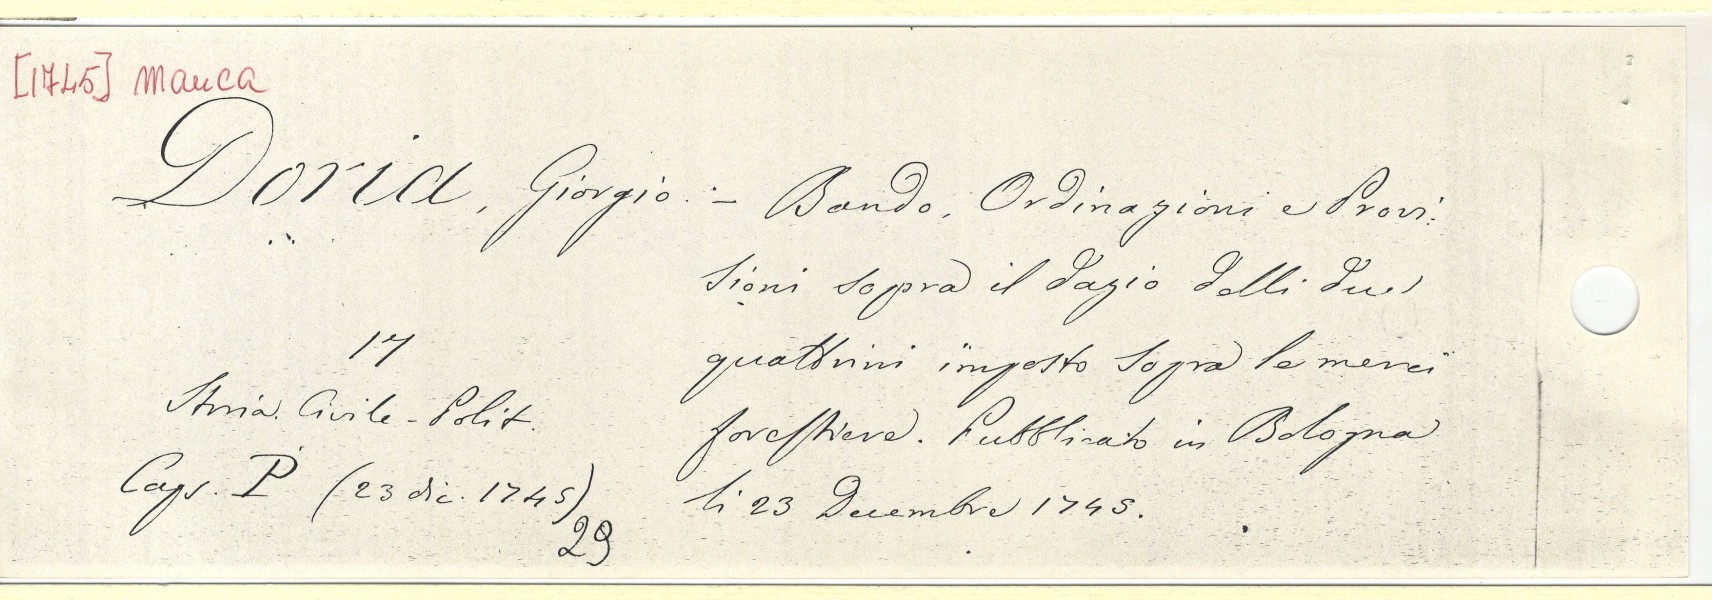 [1745] manca
Doria, Giorgio. - Bando, Ordinazioni e Provi:
sioni sopra il dazio delli due
quattrini imposto sopra le merci
forestiere. Pubblicato in Bologna
li 23 Decembre 1745.
17
Storia Civile-Polit.
Caps. P (23 dic. 1745)
29